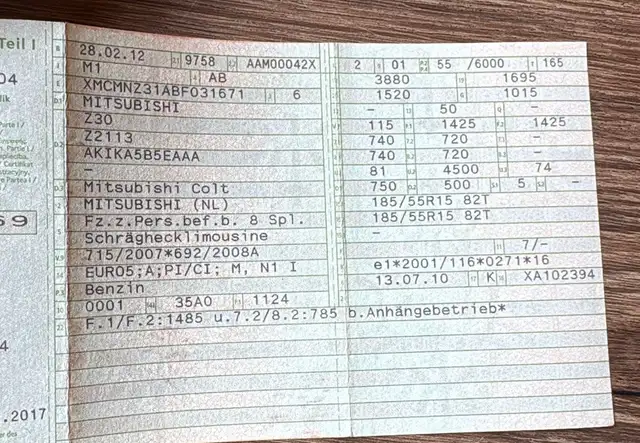 Teil I
28.02.12 9758 AAM00042X 2 01 55 /6000 165
M1 AB 3880 1695
XMCMNZ31ABF031671 6 1520 1015
MITSUBISHI – 50 –
Z30 115 1425 1425
Z2113 740 720 –
AKIKA5B5EAAA 740 720 –
– 81 4500 74
Mitsubishi Colt 750 500 5 –
MITSUBISHI (NL) 185/55R15 82T
Fz.z.Pers.bef.b. 8 Spl. 185/55R15 82T
Schräghecklimousine –
715/2007*692/2008A 7/–
EURO5;A;PI/CI; M, N1 I e1*2001/116*0271*16
Benzin 13.07.10 K XA102394
0001 35A0 1124
F.1/F.2:1485 u.7.2/8.2:785 b.Anhängebetrieb*
.2017